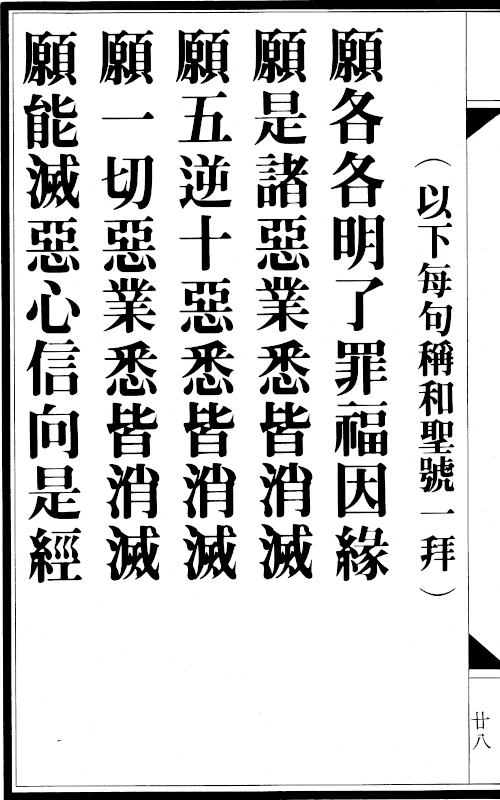 （以下每句稱和聖號一拜）
願各各明了罪福因緣
願是諸惡業悉皆消滅
願五逆十惡悉皆消滅
願一切惡業悉皆消滅
願能滅惡心信向是經
廿八